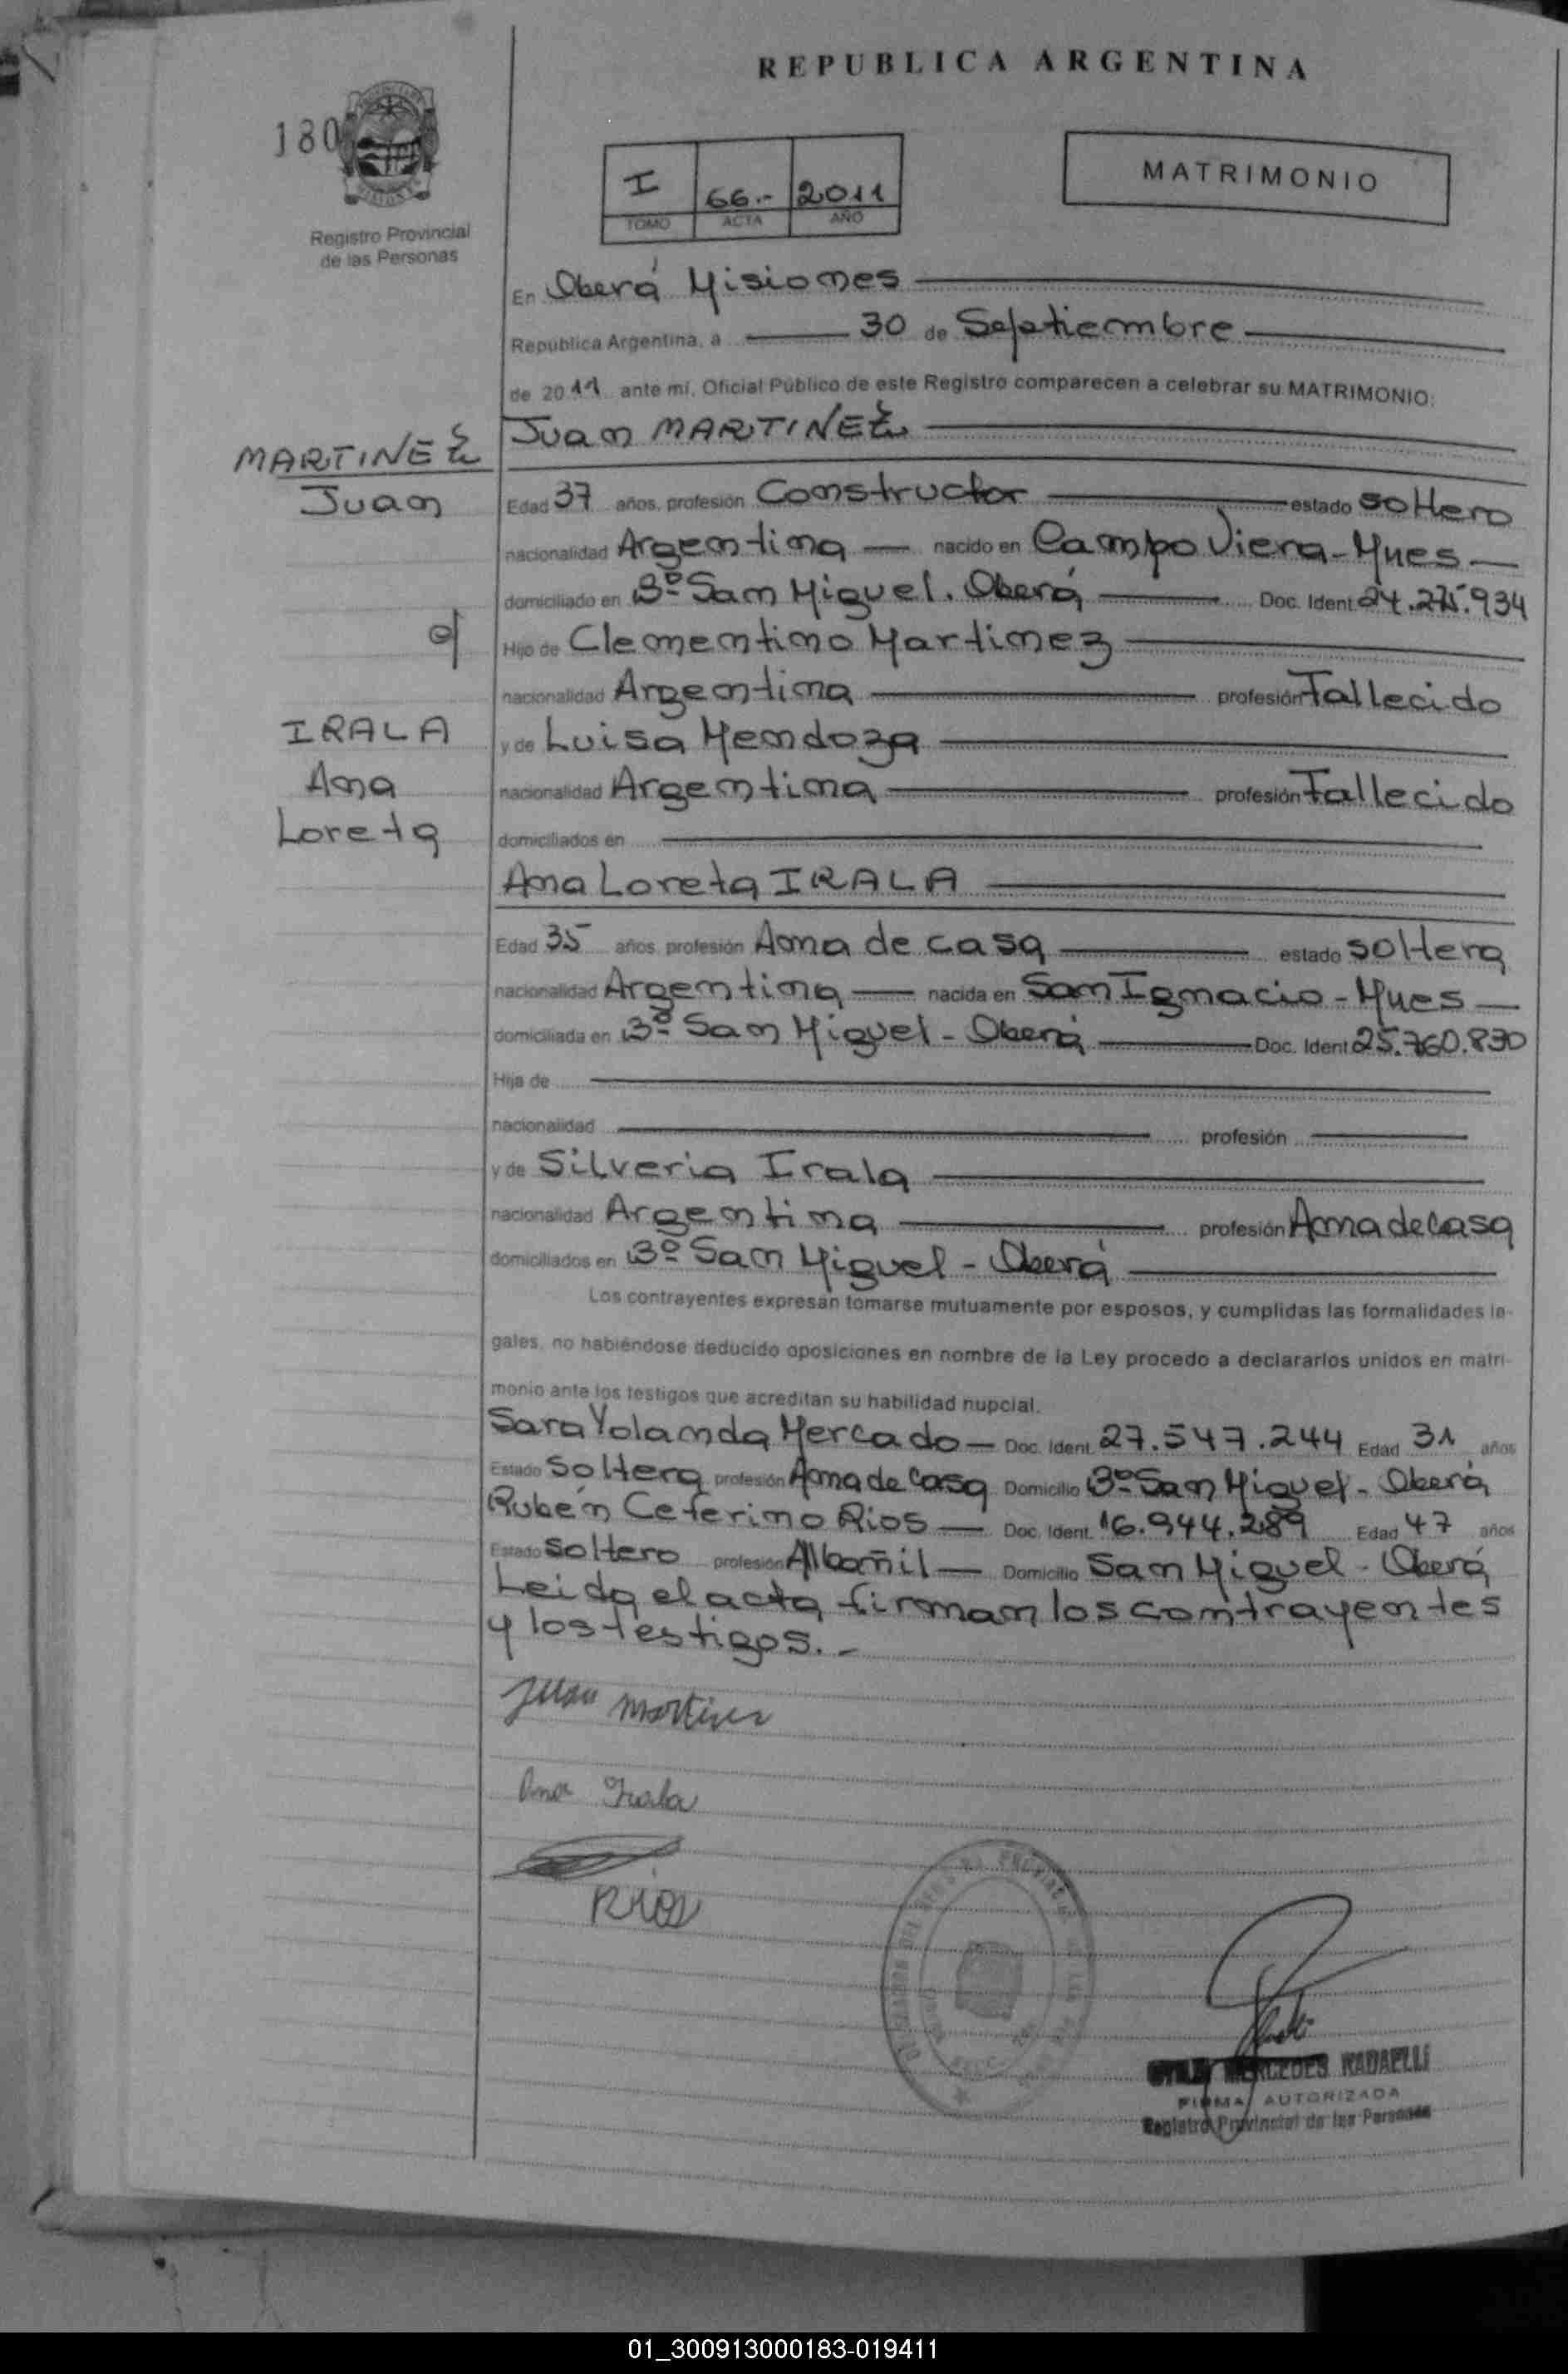 REPUBLICA ARGENTINA
180
Registro Provincial
de las Personas
I 66.- 2011
TOMO ACTA AÑO
MATRIMONIO
En Oberá Misiones
República Argentina, a 30 de Septiembre
de 2011 ante mí, Oficial Público de este Registro comparecen a celebrar su MATRIMONIO:
MARTINEZ
Juan
c/
IRALA
Ana
Loreta
Juan MARTINEZ
Edad 37 años, profesión Constructor estado soltero
nacionalidad Argentina nacido en Campo Viera - Mnes
domiciliado en Bº San Miguel. Oberá Doc. Ident. 24.275.934
Hijo de Clementino Martinez
nacionalidad Argentina profesión Fallecido
y de Luisa Mendoza
nacionalidad Argentina profesión Fallecido
domiciliados en
Ana Loreta IRALA
Edad 35 años, profesión Ama de casa estado soltera
nacionalidad Argentina nacida en San Ignacio - Mnes
domiciliada en Bº San Miguel - Oberá Doc. Ident. 25.760.830
Hija de
nacionalidad profesión
y de Silveria Irala
nacionalidad Argentina profesión Ama de Casa
domiciliados en Bº San Miguel - Oberá
Los contrayentes expresan tomarse mutuamente por esposos, y cumplidas las formalidades le-
gales, no habiéndose deducido oposiciones en nombre de la Ley procedo a declararlos unidos en matri-
monio ante los testigos que acreditan su habilidad nupcial.
Sara Yolanda Mercado Doc. Ident. 27.547.244 Edad 31 años
Estado Soltera profesión Ama de Casa Domicilio Bº San Miguel - Oberá
Rubén Ceferino Rios Doc. Ident. 16.944.289 Edad 47 años
Estado Soltero profesión Albañil Domicilio San Miguel - Oberá
Leida el acta firman los contrayentes
y los testigos.-
Juan Martinez
Ana Irala
Rios
MERCEDES RADAELLI
FIRMA AUTORIZADA
Registro Provincial de las Personas
01_300913000183-019411